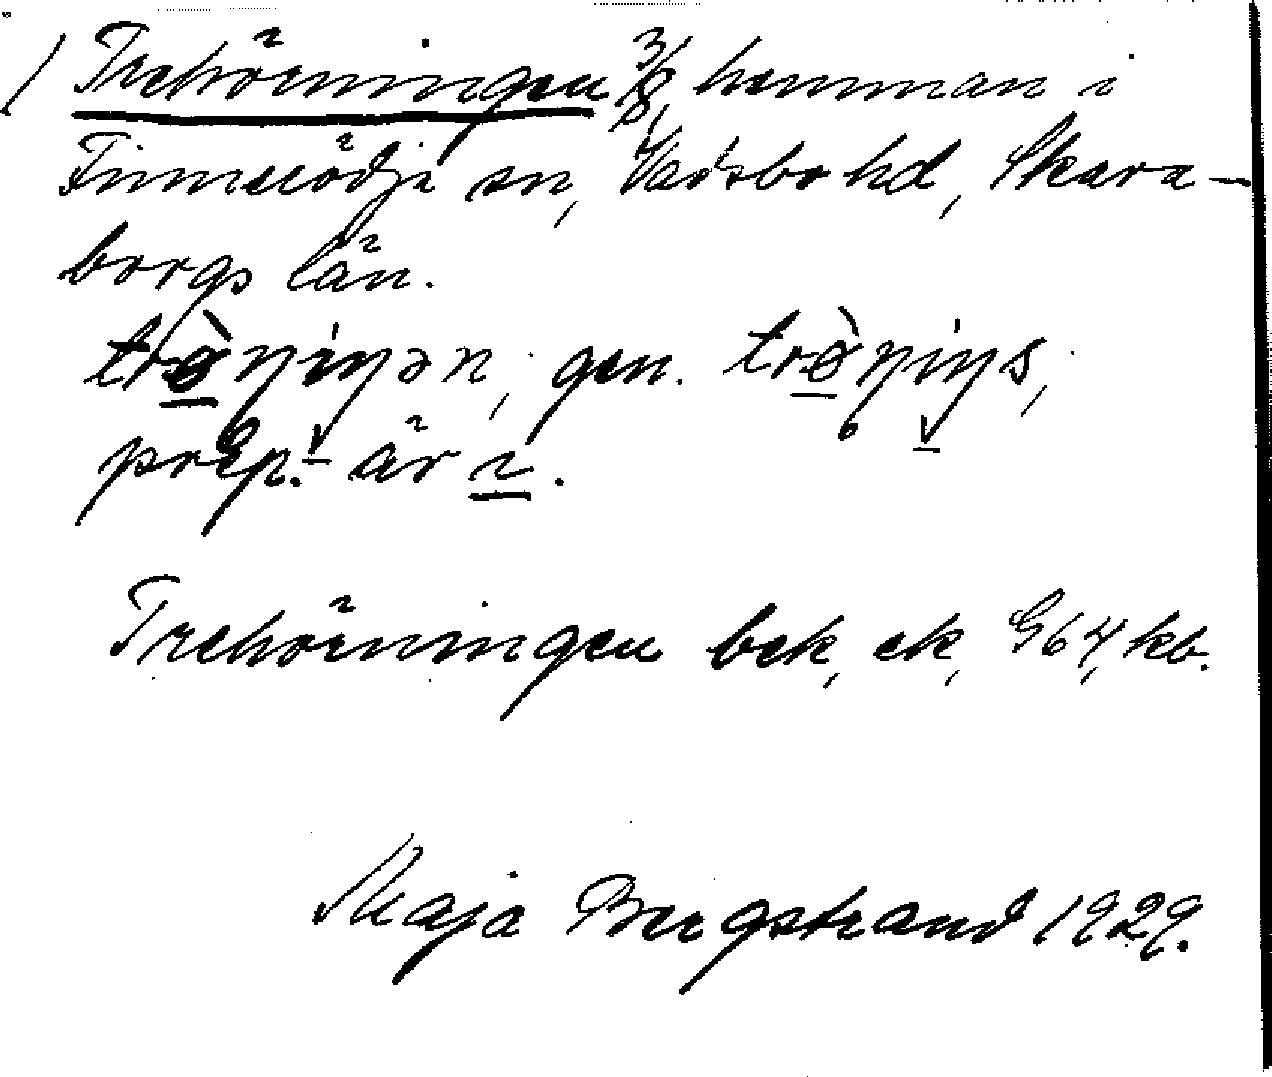 / Trehörningen 3/8 hemman i
Finnerödja sn, Vadsbo hd, Skara-
borgs län.
trø̀ŋiŋən, gen. trø̀ŋiŋs,
prep. är i.
Trehörningen bek, ek, G64, kb.
Maja Bergstrand 1929.